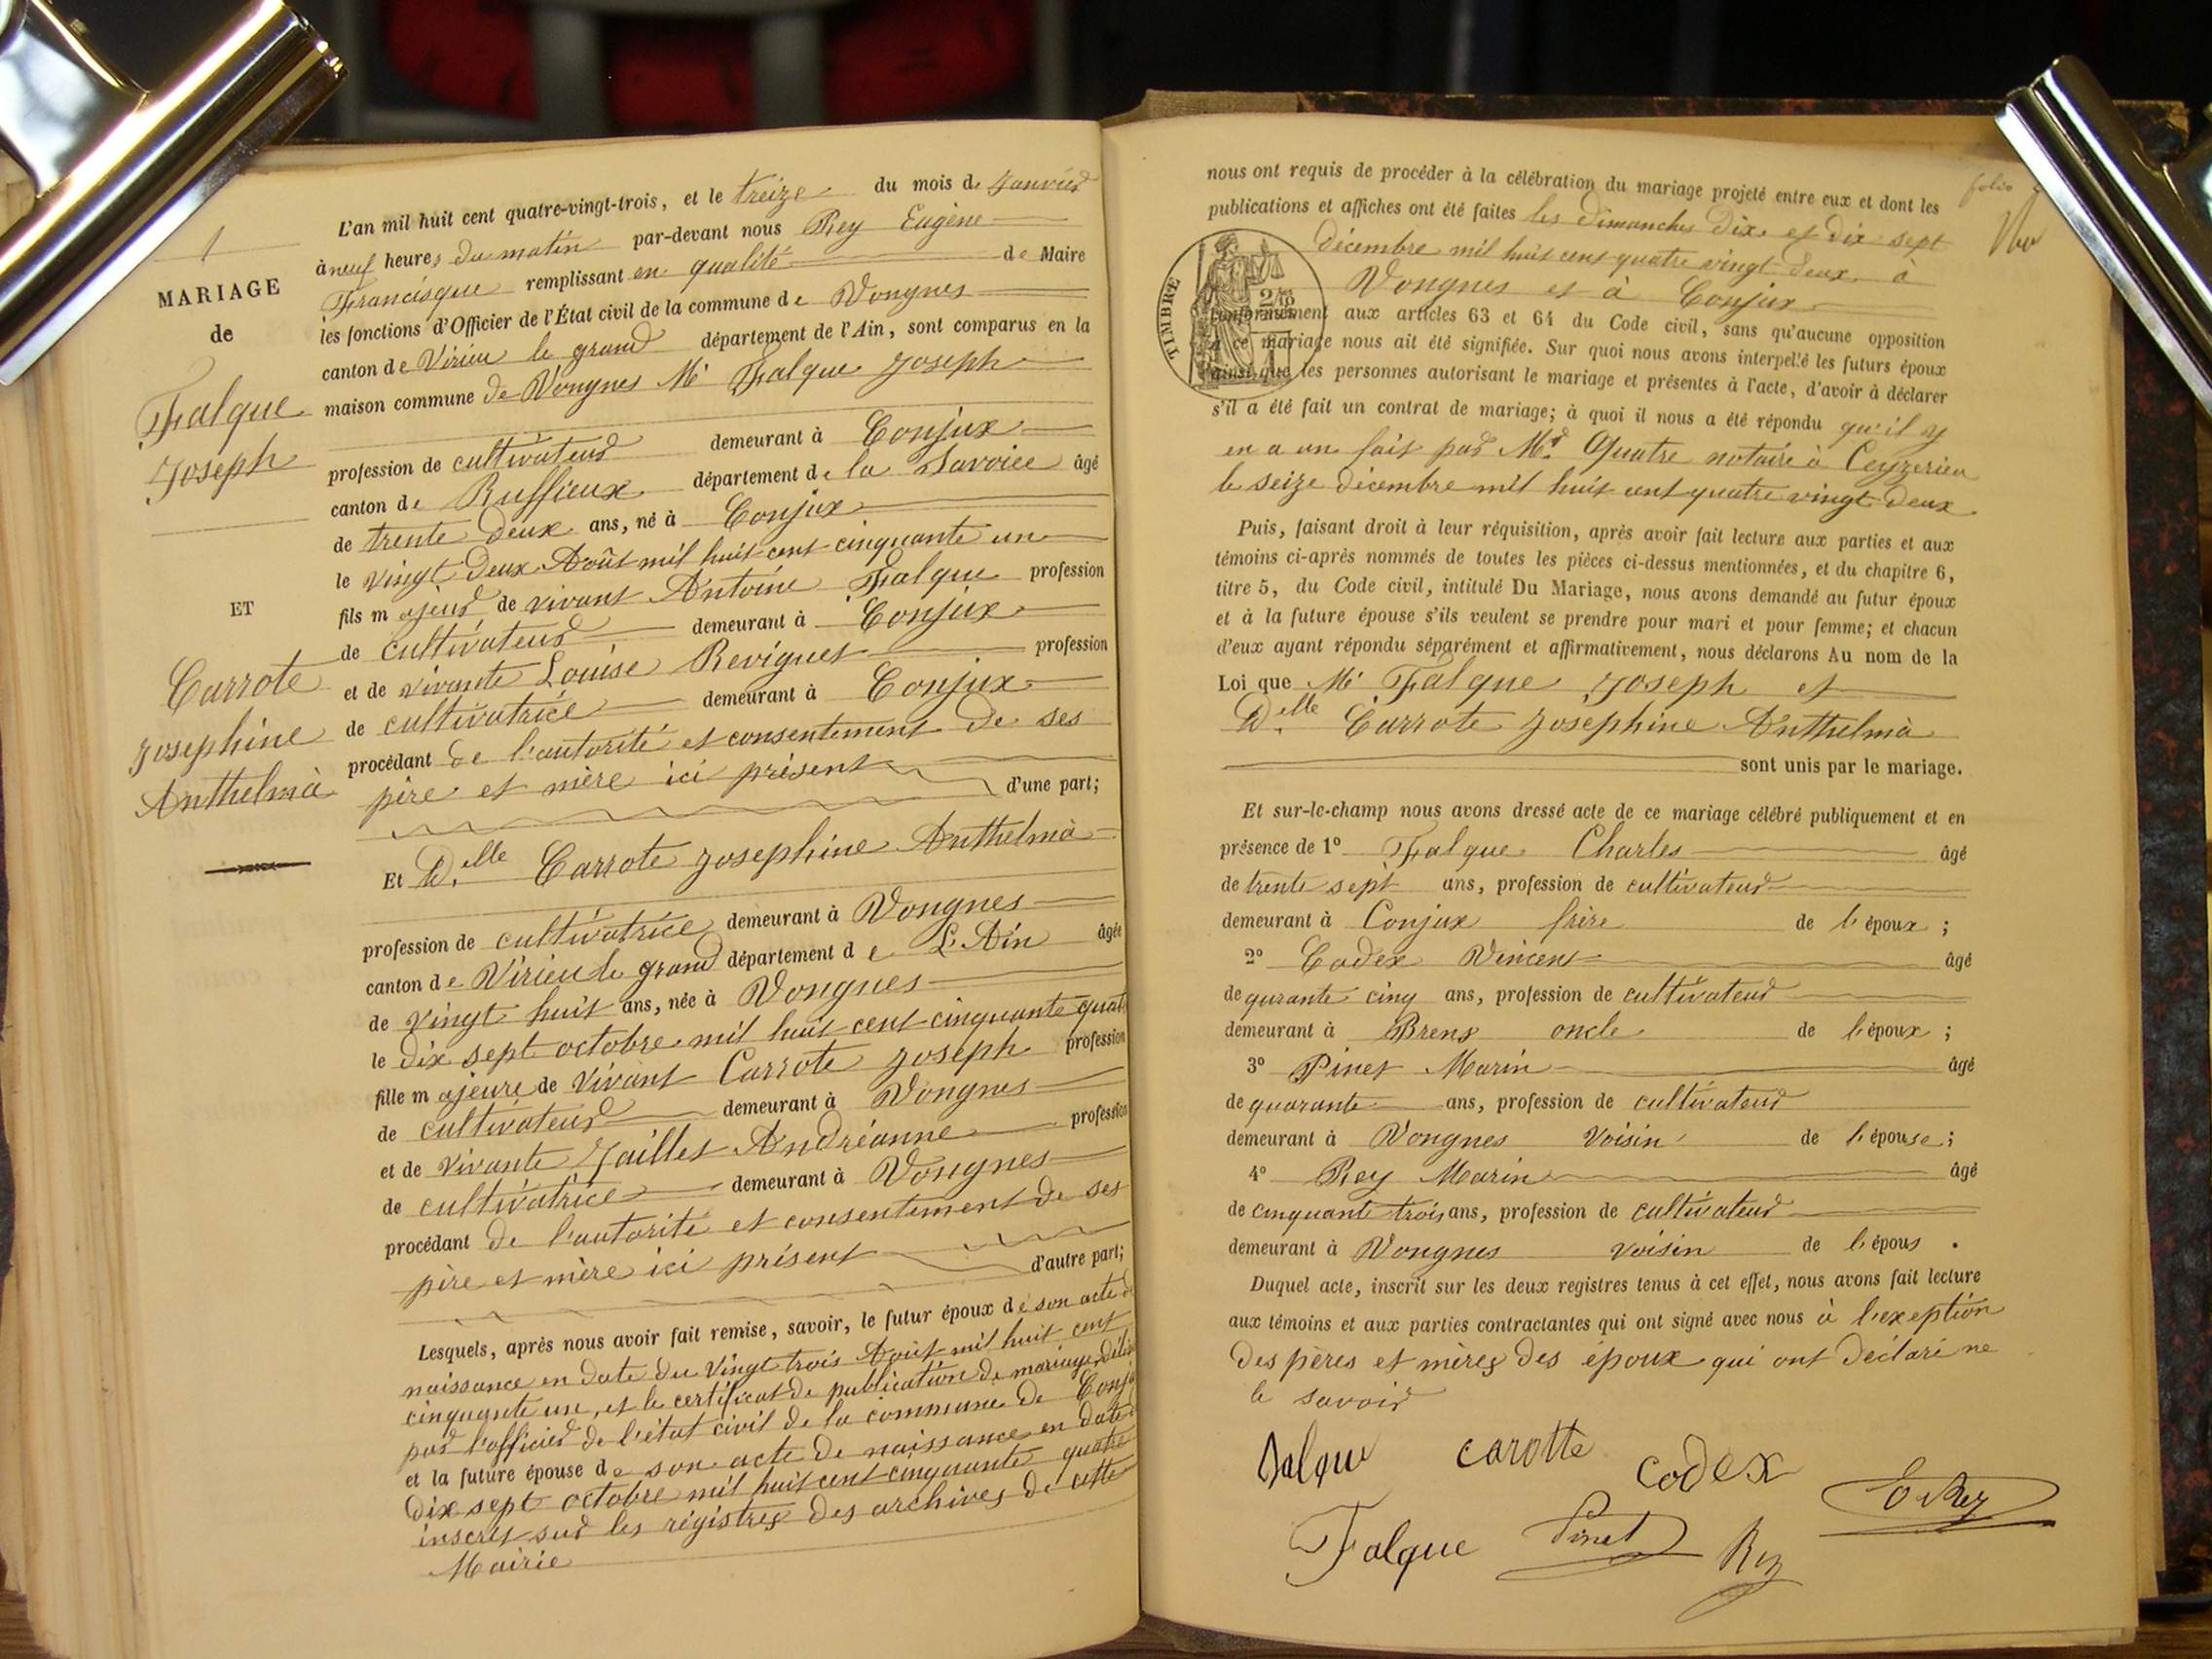 1
MARIAGE
de
Falque
Joseph
ET
Carrote
Josephine
Anthelmà
L'an mil huit cent quatre-vingt-trois, et le treize du mois de Janvier
à neuf heures du matin par-devant nous Rey Eugène
Francisque remplissant en qualité de Maire
les fonctions d'Officier de l'État civil de la commune de Vongnes
canton de Virieu le grand département de l'Ain, sont comparus en la
maison commune de Vongnes Mr Falque Joseph
profession de cultivateur demeurant à Conjux
canton de Ruffieux département de la Savoiee âgé
de trente deux ans, né à Conjux
le vingt deux Août mil huit cent cinquante un
fils majeur de vivant Antoine Falque profession
de cultivateur demeurant à Conjux
et de vivante Louise Revignet profession
de cultivatrice demeurant à Conjux
procédant de l'autorité et consentement de ses
père et mère ici présent d'une part;
Et Delle Carrote Josephine Anthelmà
profession de cultivatrice demeurant à Vongnes
canton de Virieu le grand département de L'Ain âgée
de vingt huit ans, née à Vongnes
le dix sept octobre mil huit cent cinquante quat
fille majeure de vivant Carrote Joseph profession
de cultivateur demeurant à Vongnes
et de vivante Jaillet Andréanne profession
de cultivatrice demeurant à Vongnes
procédant de l'autorité et consentement de ses
père et mère ici présent d'autre part;
Lesquels, après nous avoir fait remise, savoir, le futur époux de son acte de
naissance en date du vingt trois Août mil huit cent
cinquante un, et le certificat de publication de mariage, déliv
par l'officier de l'état civil de la commune de Conju
et la future épouse de son acte de naissance en date
dix sept octobre mil huit cent cinquante quatre
inscrit sur les régistres des archives de cette
Mairie
folio
nous ont requis de procéder à la célébration du mariage projeté entre eux et dont les
publications et affiches ont été faites les dimanches dix et dix sept
décembre mil huit cent quatre vingt deux à
Vongnes et à Conjux
TIMBRE
conformément aux articles 63 et 64 du Code civil, sans qu'aucune opposition
à ce mariage nous ait été signifiée. Sur quoi nous avons interpelé les futurs époux
ainsi que les personnes autorisant le mariage et présentes à l'acte, d'avoir à déclarer
s'il a été fait un contrat de mariage; à quoi il nous a été répondu qu'il y
en a un fait par Mr. Quatre notaire à Ceyzerieu
le seize décembre mil huit cent quatre vingt deux
Puis, faisant droit à leur réquisition, après avoir fait lecture aux parties et aux
témoins ci-après nommés de toutes les pièces ci-dessus mentionnées, et du chapitre 6,
titre 5, du Code civil, intitulé Du Mariage, nous avons demandé au futur époux
et à la future épouse s'ils veulent se prendre pour mari et pour femme; et chacun
d'eux ayant répondu séparément et affirmativement, nous déclarons Au nom de la
Loi que Mr Falque Joseph et
Delle Carrote Josephine Anthelmà
sont unis par le mariage.
Et sur-le-champ nous avons dressé acte de ce mariage célébré publiquement et en
présence de 1° Falque Charles âgé
de trente sept ans, profession de cultivateur
demeurant à Conjux frère de l'époux ;
2° Codex Vincent âgé
de qurante cinq ans, profession de cultivateur
demeurant à Brens oncle de l'époux ;
3° Pinet Marin âgé
de quarante ans, profession de cultivateur
demeurant à Vongnes voisin de l'épouse ;
4° Rey Marin âgé
de cinquante trois ans, profession de cultivateur
demeurant à Vongnes voisin de l'épous .
Duquel acte, inscrit sur les deux registres tenus à cet effet, nous avons fait lecture
aux témoins et aux parties contractantes qui ont signé avec nous à l'exeption
des pères et mères des époux qui ont déclaré ne
le savoir
Falque carotte codex
E Rey
Falque Pinet Rey